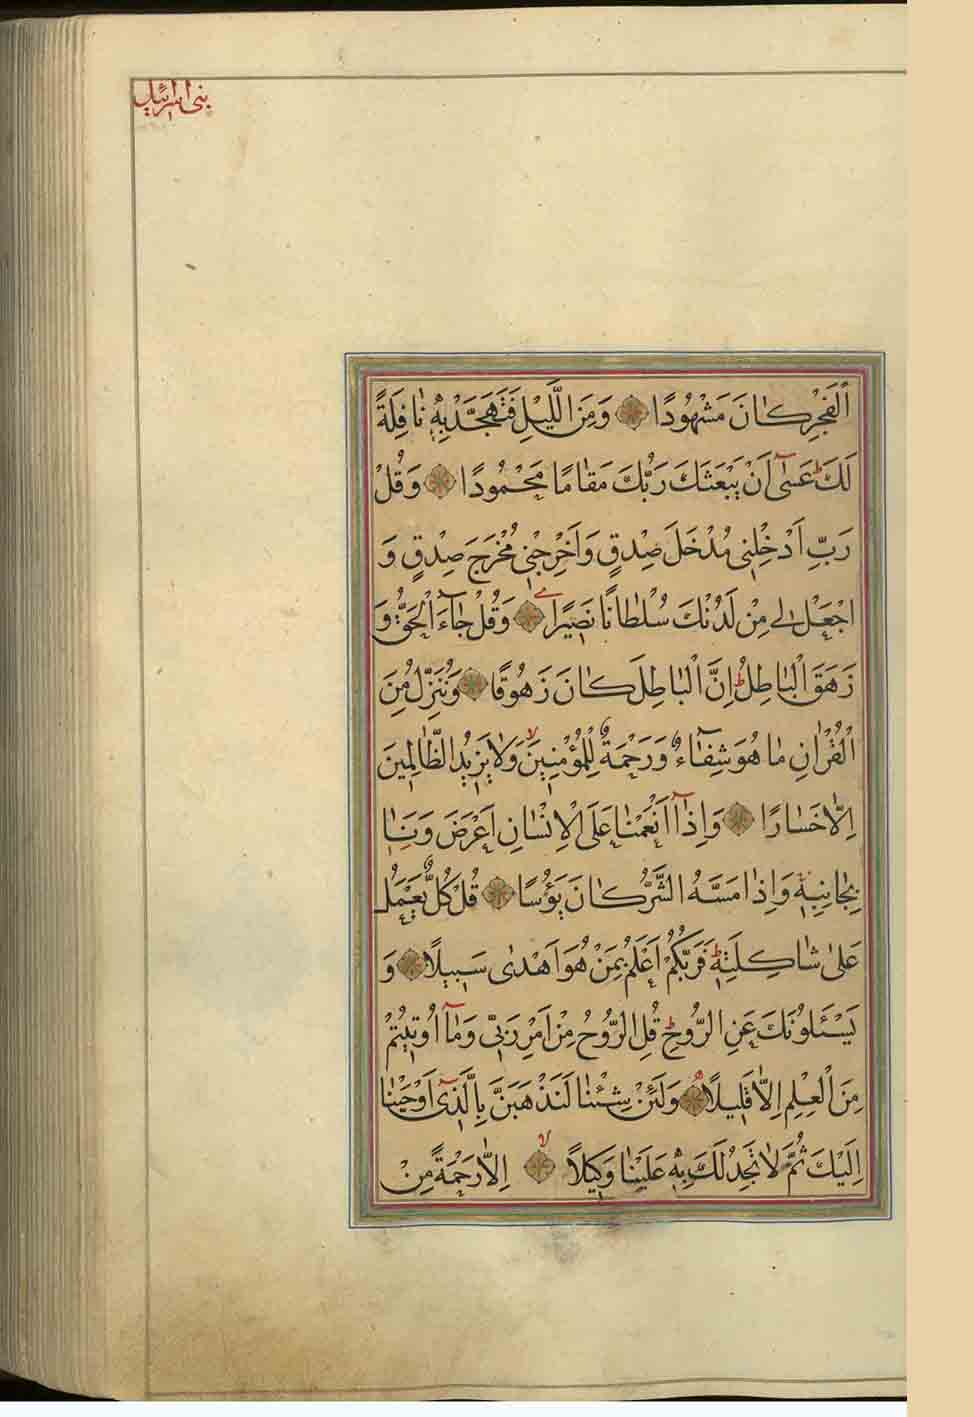 بنی اسرائیل
الْفَجْرِ كَانَ مَشْهُودًا وَمِنَ الَّيْلِ فَتَهَجَّدْ بِهٖ نَافِلَةً
لَكَ عَسٰٓى اَنْ يَبْعَثَكَ رَبُّكَ مَقَامًا مَحْمُودًا وَقُلْ
رَبِّ اَدْخِلْنِى مُدْخَلَ صِدْقٍ وَاَخْرِجْنِى مُخْرَجَ صِدْقٍ وَ
اجْعَلْ لِى مِنْ لَدُنْكَ سُلْطَانًا نَصِيرًا وَقُلْ جَآءَ الْحَقُّ وَ
زَهَقَ الْبَاطِلُ اِنَّ الْبَاطِلَ كَانَ زَهُوقًا وَنُنَزِّلُ مِنَ
الْقُرْاٰنِ مَا هُوَ شِفَآءٌ وَرَحْمَةٌ لِلْمُؤْمِنِينَ وَلَا يَزِيدُ الظَّالِمِينَ
اِلَّا خَسَارًا وَاِذَآ اَنْعَمْنَا عَلَى الْاِنْسَانِ اَعْرَضَ وَنَـَٔا
بِجَانِبِهٖ وَاِذَا مَسَّهُ الشَّرُّ كَانَ يَؤُسًا قُلْ كُلٌّ يَعْمَلُ
عَلٰى شَاكِلَتِهٖ فَرَبُّكُمْ اَعْلَمُ بِمَنْ هُوَ اَهْدٰى سَبِيلًا وَ
يَسْـَٔلُونَكَ عَنِ الرُّوحِ قُلِ الرُّوحُ مِنْ اَمْرِ رَبِّى وَمَآ اُوتِيتُمْ
مِنَ الْعِلْمِ اِلَّا قَلِيلًا وَلَئِنْ شِئْنَا لَنَذْهَبَنَّ بِالَّذِىٓ اَوْحَيْنَا
اِلَيْكَ ثُمَّ لَا تَجِدُ لَكَ بِهٖ عَلَيْنَا وَكِيلًا اِلَّا رَحْمَةً مِنْ